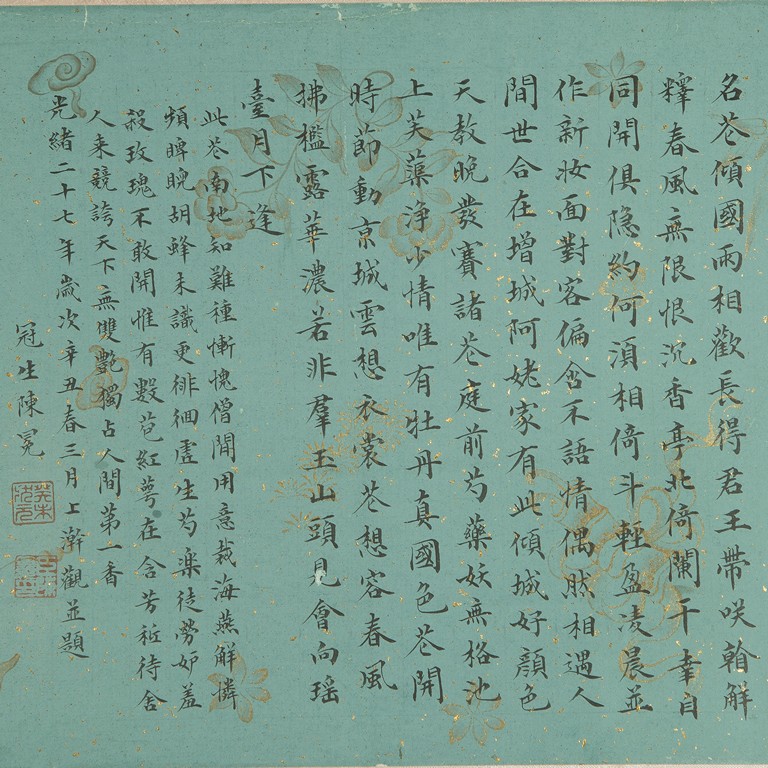 名花傾國兩相歡長得君王帶咲翰解
釋春風無限恨沉香亭北倚闌干幸自
同開俱隐約何湏相倚斗輕盈凌晨並
作新妝面對客偏含不語情偶然相遇人
間世合在增城阿姥家有此傾城好顔色
天教晚發賽諸花庭前芍藥妖無格池
上芙蕖浄少情唯有牡丹真國色花開
時莭動京城雲想衣裳花想容春風
拂檻露華濃若非羣玉山頭見會向瑶
臺月下逢
此花南地知難種慚愧僧閒用意裁海燕解憐
頻睥睨胡蜂未識更徘徊虛生芍藥徒勞妒羞
殺玫瑰不敢開惟有數苞紅萼在含芳秪待舍
人来競誇天下無雙艷獨占人間第一香
光緒二十七年歲次辛丑春三月上澣觀並題
冠生陳冕